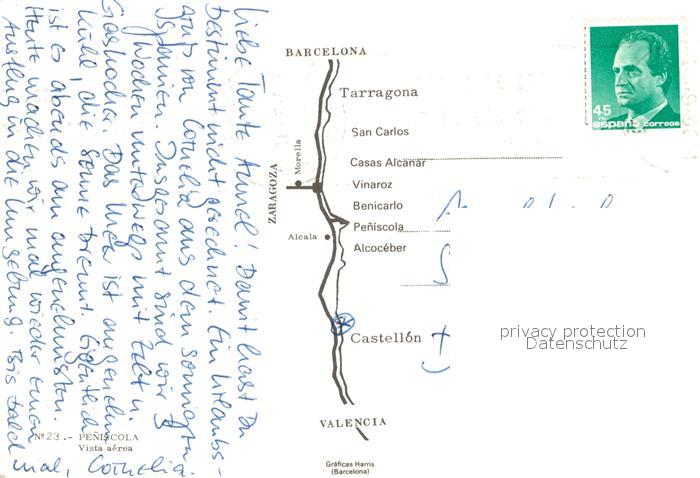 Liebe Tante Annel! Damit hast Du
bestimmt nicht gerechnet. Ein Urlaubs-
gruß von Cornelia aus dem sonnigen
Spanien. Insgesamt sind wir 3
Wochen unterwegs mit Zelt u.
Gaskocher. Das Meer ist angenehm
kühl, die Sonne brennt. Eigentlich
ist es abends am angenehmsten.
Heute machen wir mal wieder einen
Ausflug in die Umgebung. Bis bald
mal, Cornelia.
Nº 23.- PEÑISCOLA
Vista aérea
BARCELONA
Tarragona
San Carlos
Casas Alcanar
Morella
ZARAGOZA
Vinaroz
Benicarlo
Peñíscola
Alcala
Alcocéber
Castellón
VALENCIA
Gráficas Harris
(Barcelona)
45
PTA
españa correos
privacy protection
Datenschutz